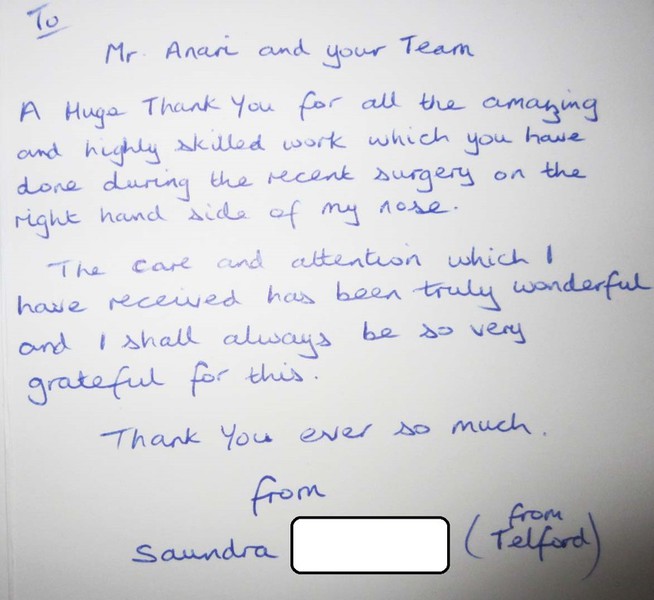 To
Mr. Anari and your Team
A Huge Thank You for all the amazing
and highly skilled work which you have
done during the recent surgery on the
right hand side of my nose.
The care and attention which I
have received has been truly wonderful
and I shall always be so very
grateful for this.
Thank You ever so much.
from
Saundra (from
Telford)